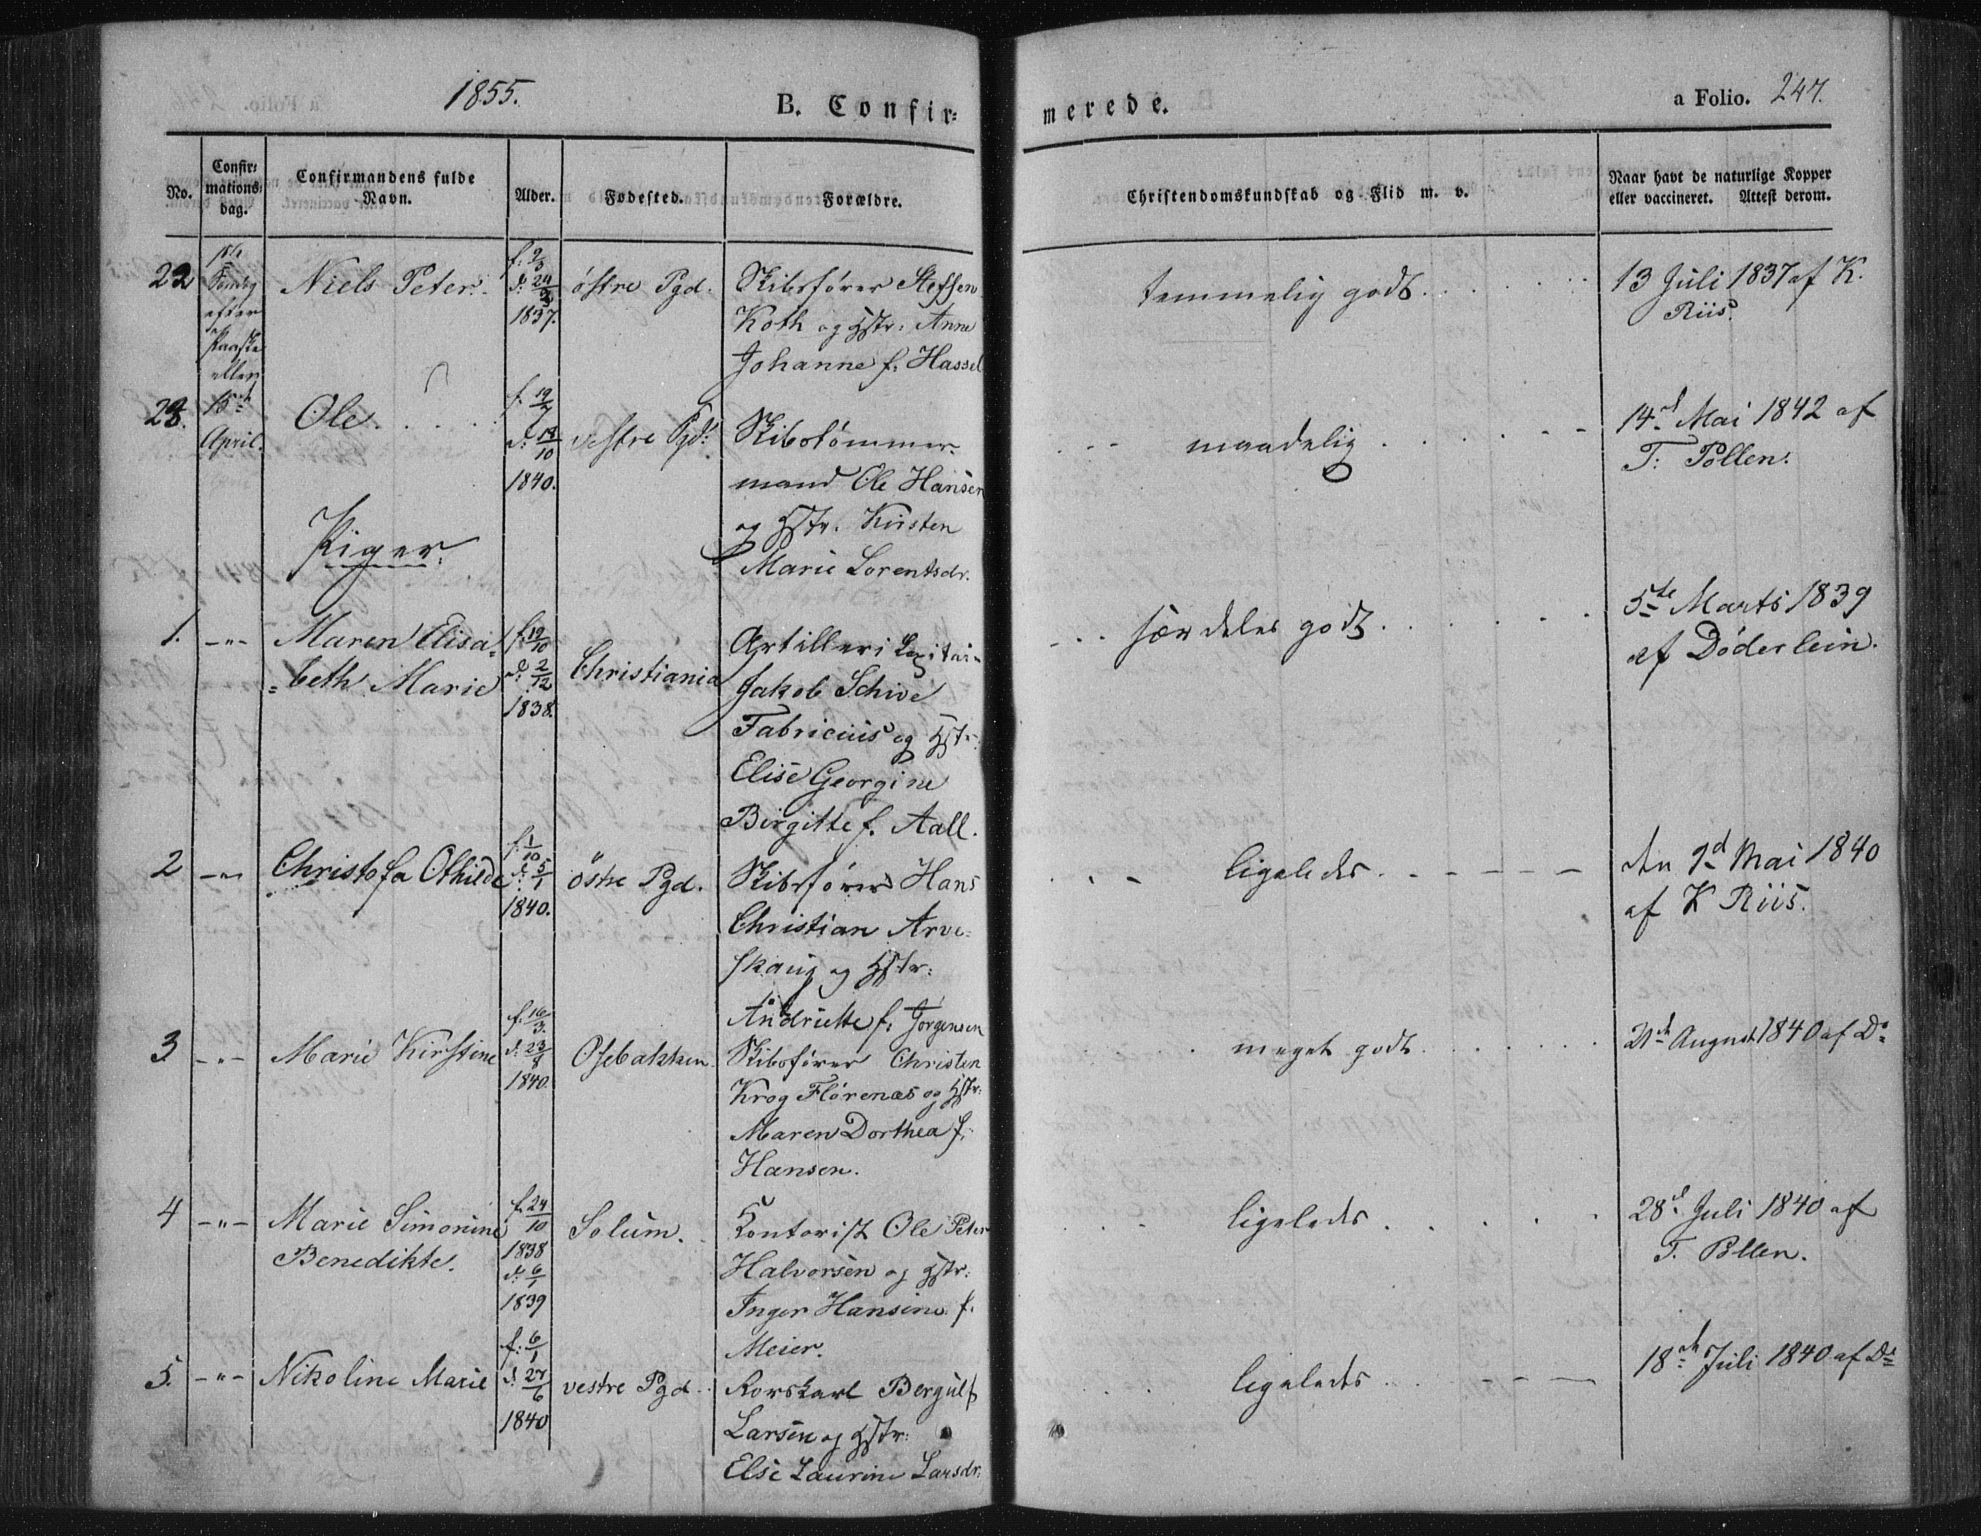 1855.
B. Confir=
merede.
a Folio. 247.
No.
Confir=
mations=
dag.
Confirmandens fulde
Navn.
Alder.
Fødested.
Forældre.
Christendomskundskab og Flid m. v.
Naar havt de naturlige Kopper
eller vaccineret. Attest derom.
22
1ste
Søndag
efter
Paaske
eller
15de
April.
Niels Peter.
f. 2/3
1837.
østre Pgd.
Skibsfører Steffen
Koth og Hstr: Anne
Johanne f. Hassel
temmelig godt
13 Juli 1837 af K.
Riis.
23.
Ole
f. 19/7
d. 18/10
1840.
vestre Pgd.
Skibstømmer-
mand Ole Hansen
og Hstr. Kirsten
Marie Lorentsdr.
maadelig
14d Mai 1842 af
T. Pollen.
Piger.
1. -"-
Maren Elisa=
=beth Marie
f. 19/10
d. 2/12
1838.
Christiania
Artilleri
Jakob Schive
Fabricius og Hstr.
Elise Georgine
Birgitte f. Aall.
særdeles godt
5te Marts 1839
af Døderlein.
2 -"-
Christofa Othilde
f. 1/10
d. 5/1
1840.
østre Pgd.
Skibsfører Hans
Christian Arve=
skoug og Hstr:
Andriette f. Jørgensen
ligeledes
den 9d Mai 1840
af K Riis.
3 -"-
Marie Kirstine
f. 16/3.
d. 23/8
1840.
Osebakken
Skibsfører Christen
Krog Flørenæs og Hstr:
Maren Dorthea f.
Hansen.
meget godt
21de August 1840 af Do
4 -"-
Marie Simonine
Benedikte.
f. 24/10
1838
d. 6/1
1839
Solum.
Kontorist Ole Peter
Halvorsen og Hstr:
Inger Hansine f.
Meier.
ligeledes
28d Juli 1840 af
T. Pollen.
5. -"-
Nikoline Marie
f. 6/1
d. 27/6
1840
vestre Pgd.
Rorskarl Bergulf
Larsen og Hstr:
Else Laurine Larsdr.
ligeledes
18de Juli 1840 af Do